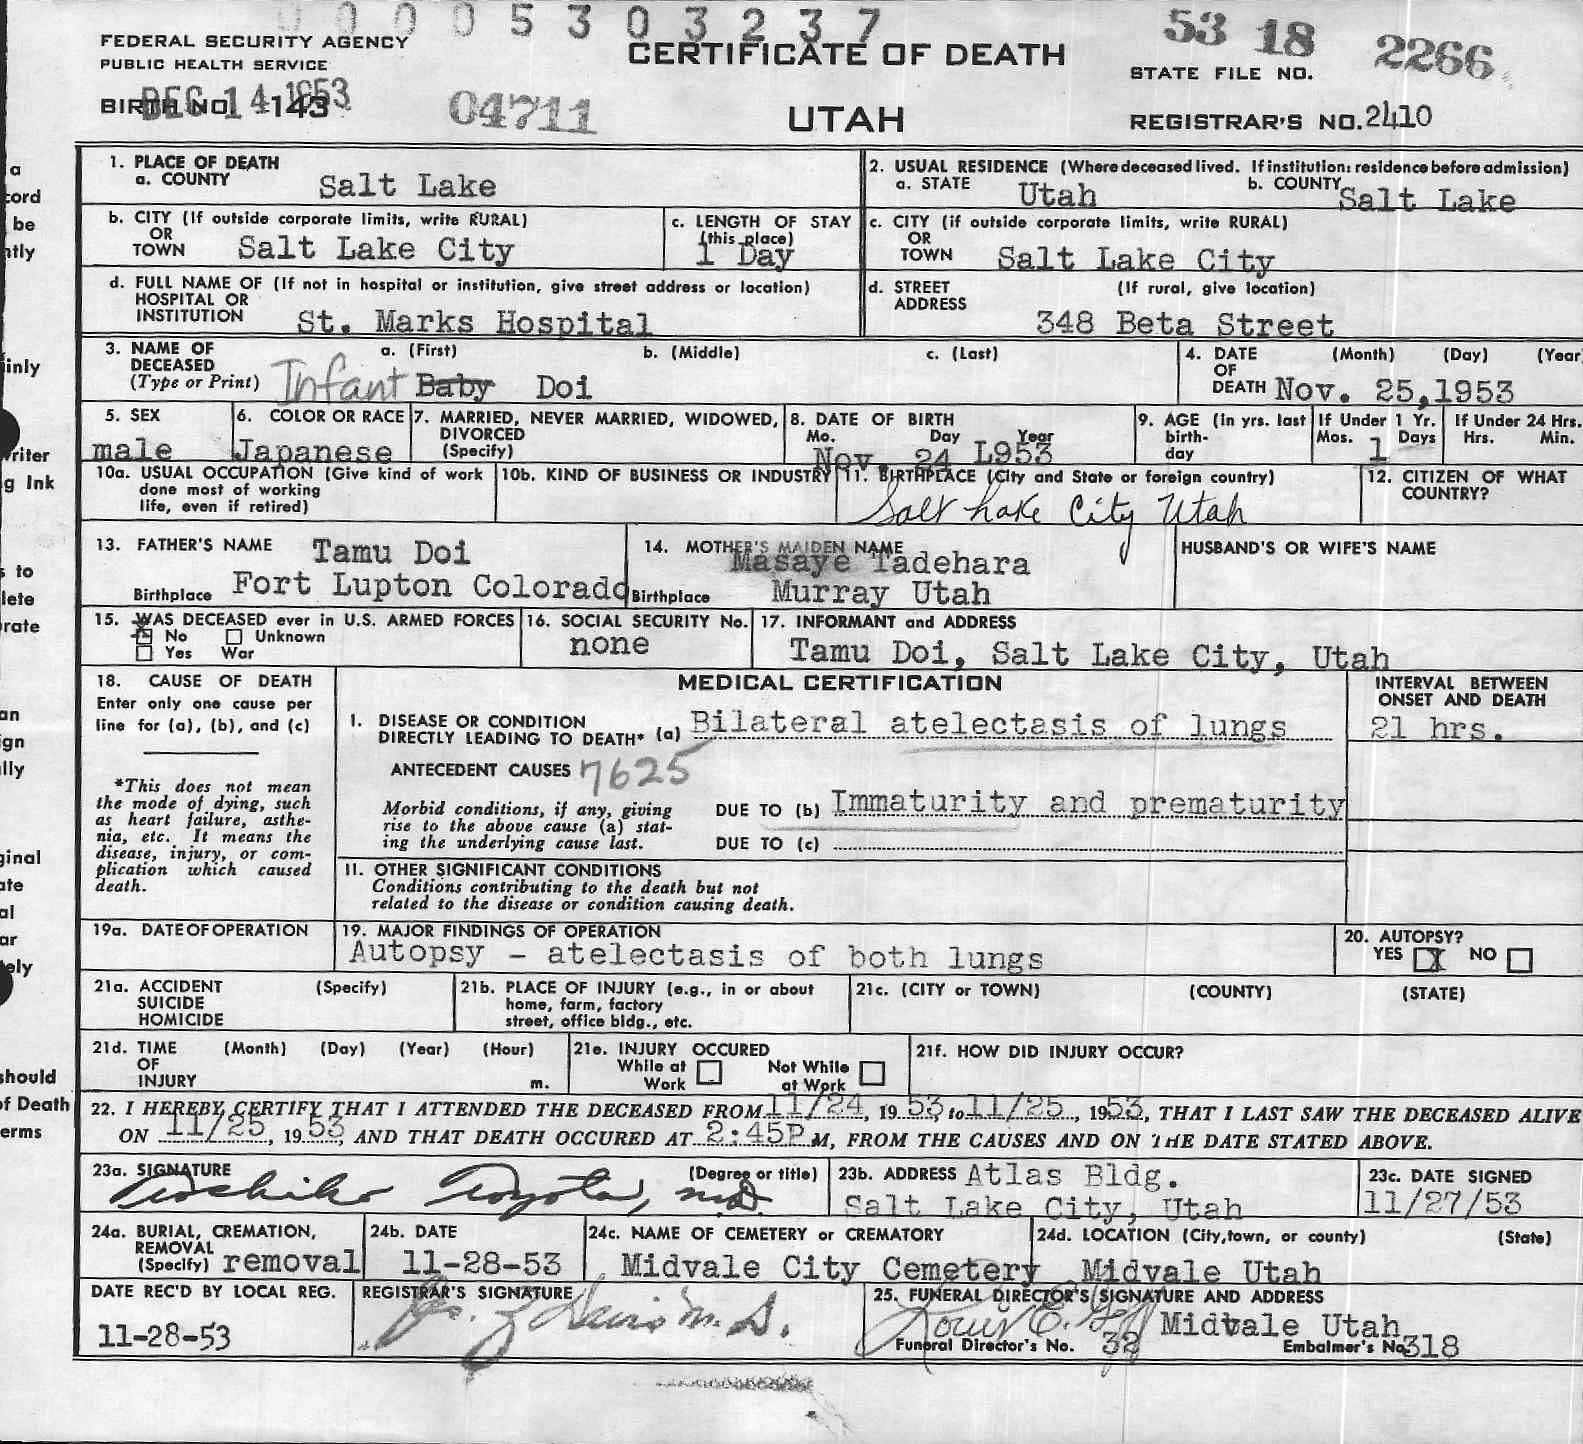 0 0 0 0 5 3 0 3 2 3 7
FEDERAL SECURITY AGENCY
PUBLIC HEALTH SERVICE
BIRTH NO. 143
DEC 14 1953
04711
CERTIFICATE OF DEATH
UTAH
53 18 2266
STATE FILE NO.
REGISTRAR'S NO. 2410
1. PLACE OF DEATH
a. COUNTY Salt Lake
2. USUAL RESIDENCE (Where deceased lived. If institution: residence before admission)
a. STATE Utah b. COUNTY Salt Lake
b. CITY (If outside corporate limits, write RURAL)
OR
TOWN Salt Lake City
c. LENGTH OF STAY
(this place)
1 Day
c. CITY (if outside corporate limits, write RURAL)
OR
TOWN Salt Lake City
d. FULL NAME OF (If not in hospital or institution, give street address or location)
HOSPITAL OR
INSTITUTION St. Marks Hospital
d. STREET (If rural, give location)
ADDRESS 348 Beta Street
3. NAME OF a. (First) b. (Middle) c. (Last)
DECEASED
(Type or Print) Infant Baby Doi
4. DATE (Month) (Day) (Year
OF
DEATH Nov. 25,1953
5. SEX
male
6. COLOR OR RACE
Japanese
7. MARRIED, NEVER MARRIED, WIDOWED,
DIVORCED
(Specify)
8. DATE OF BIRTH
Mo. Day Year
Nov. 24 L953
9. AGE (in yrs. last
birth-
day
If Under 1 Yr.
Mos. 1 Days
If Under 24 Hrs.
Hrs. Min.
10a. USUAL OCCUPATION (Give kind of work
done most of working
life, even if retired)
10b. KIND OF BUSINESS OR INDUSTRY
11. BIRTHPLACE (City and State or foreign country)
Salt Lake City Utah
12. CITIZEN OF WHAT
COUNTRY?
13. FATHER'S NAME Tamu Doi
Birthplace Fort Lupton Colorado
14. MOTHER'S MAIDEN NAME
Masaye Tadehara
Birthplace Murray Utah
HUSBAND'S OR WIFE'S NAME
15. WAS DECEASED ever in U.S. ARMED FORCES
x No Unknown
Yes War
16. SOCIAL SECURITY No.
none
17. INFORMANT and ADDRESS
Tamu Doi, Salt Lake City, Utah
18. CAUSE OF DEATH
Enter only one cause per
line for (a), (b), and (c)
*This does not mean
the mode of dying, such
as heart failure, asthe-
nia, etc. It means the
disease, injury, or com-
plication which caused
death.
MEDICAL CERTIFICATION
INTERVAL BETWEEN
ONSET AND DEATH
I. DISEASE OR CONDITION
DIRECTLY LEADING TO DEATH* (a) Bilateral atelectasis of lungs
21 hrs.
ANTECEDENT CAUSES 7625
Morbid conditions, if any, giving
rise to the above cause (a) stat-
ing the underlying cause last.
DUE TO (b) Immaturity and prematurity
DUE TO (c)
II. OTHER SIGNIFICANT CONDITIONS
Conditions contributing to the death but not
related to the disease or condition causing death.
19a. DATE OF OPERATION
19. MAJOR FINDINGS OF OPERATION
Autopsy - atelectasis of both lungs
20. AUTOPSY?
YES X NO
21a. ACCIDENT (Specify)
SUICIDE
HOMICIDE
21b. PLACE OF INJURY (e.g., in or about
home, farm, factory
street, office bldg., etc.
21c. (CITY or TOWN) (COUNTY) (STATE)
21d. TIME (Month) (Day) (Year) (Hour)
OF
INJURY m.
21e. INJURY OCCURED
While at Not While
Work at Work
21f. HOW DID INJURY OCCUR?
22. I HEREBY CERTIFY THAT I ATTENDED THE DECEASED FROM 11/24, 19 53, to 11/25, 1953, THAT I LAST SAW THE DECEASED ALIVE
ON 11/25, 19 53, AND THAT DEATH OCCURED AT 2:45P M, FROM THE CAUSES AND ON THE DATE STATED ABOVE.
23a. SIGNATURE (Degree or title)
Toshiko Toyota, M.D.
23b. ADDRESS Atlas Bldg.
Salt Lake City, Utah
23c. DATE SIGNED
11/27/53
24a. BURIAL, CREMATION,
REMOVAL
(Specify) removal
24b. DATE
11-28-53
24c. NAME OF CEMETERY or CREMATORY
Midvale City Cemetery
24d. LOCATION (City, town, or county) (State)
Midvale Utah
DATE REC'D BY LOCAL REG.
11-28-53
REGISTRAR'S SIGNATURE
M.D.
25. FUNERAL DIRECTOR'S SIGNATURE AND ADDRESS
Louis E.
Midvale Utah
Funeral Director's No. 32
Embalmer's No. 318
a
cord
be
ntly
inly
writer
g Ink
s to
lete
rate
an
ign
lly
ginal
ate
al
ar
ely
should
of Death
erms